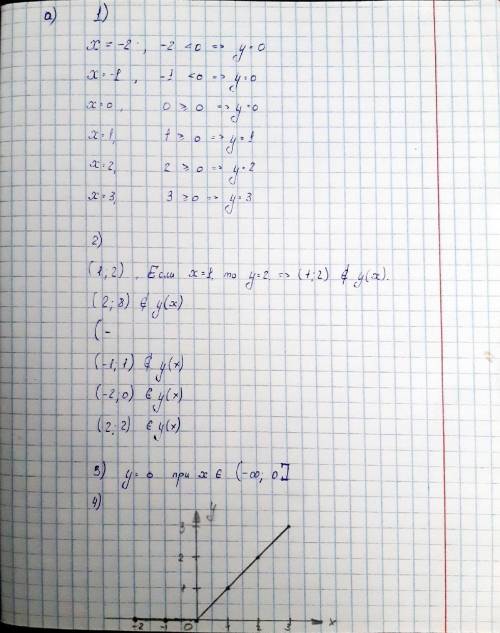 а) 1)
x = -2, -2 < 0 => y = 0
x = -1, -1 < 0 => y = 0
x = 0, 0 ≥ 0 => y = 0
x = 1, 1 ≥ 0 => y = 1
x = 2, 2 ≥ 0 => y = 2
x = 3, 3 ≥ 0 => y = 3
2)
(1, 2). Если x = 1, то y = 2 => (1; 2) ∉ y(x).
(2; 8) ∉ y(x)
(-
(-1; 1) ∉ y(x)
(-2, 0) ∈ y(x)
(2; 2) ∈ y(x)
3) y = 0 при x ∈ (-∞, 0]
4)
y
3
2
1
-2 -1 0 1 2 3 x